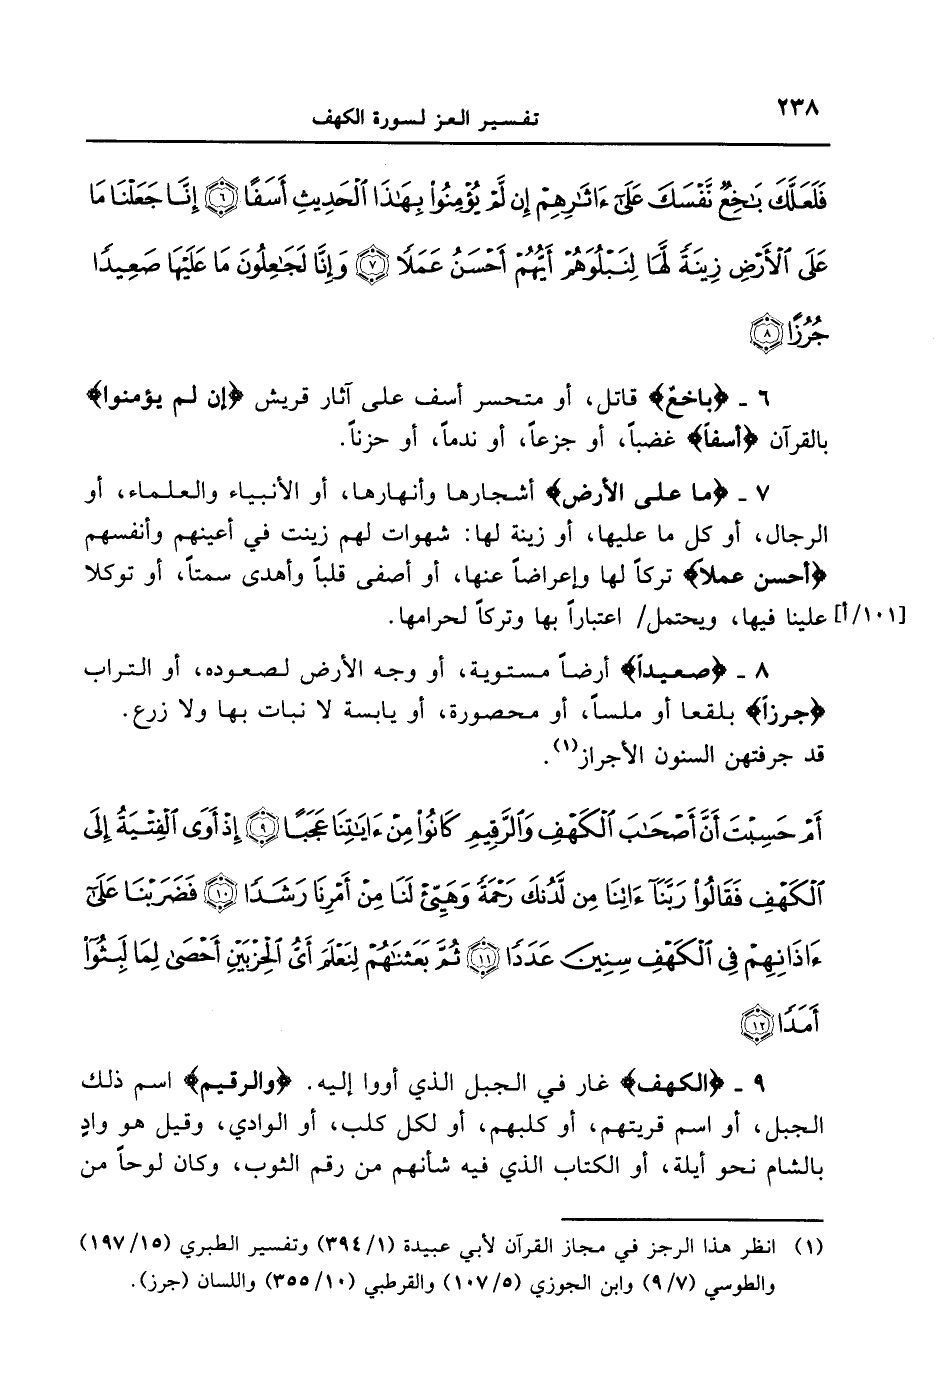 ٢٣٨
تفسير العز لسورة الكهف
فَلَعَلَّكَ بَٰخِعٌ نَّفْسَكَ عَلَىٰٓ ءَاثَٰرِهِمْ إِن لَّمْ يُؤْمِنُوا۟ بِهَٰذَا ٱلْحَدِيثِ أَسَفًا ٦ إِنَّا جَعَلْنَا مَا
عَلَى ٱلْأَرْضِ زِينَةً لَّهَا لِنَبْلُوَهُمْ أَيُّهُمْ أَحْسَنُ عَمَلًا ٧ وَإِنَّا لَجَٰعِلُونَ مَا عَلَيْهَا صَعِيدًا
جُرُزًا ٨
٦ ـ ﴿باخعٌ﴾ قاتل، أو متحسر أسف على آثار قريش ﴿إن لم يؤمنوا﴾
بالقرآن ﴿أسفاً﴾ غضباً، أو جزعاً، أو ندماً، أو حزناً.
٧ ـ ﴿ما على الأرض﴾ أشجارها وأنهارها، أو الأنبياء والعلماء، أو
الرجال، أو كل ما عليها، أو زينة لها: شهوات لهم زينت في أعينهم وأنفسهم
﴿أحسن عملاً﴾ تركاً لها وإعراضاً عنها، أو أصفى قلباً وأهدى سمتاً، أو توكلا
[١٠١/أ] علينا فيها، ويحتمل/ اعتباراً بها وتركاً لحرامها.
٨ ـ ﴿صعيداً﴾ أرضاً مستوية، أو وجه الأرض لصعوده، أو التراب
﴿جرزاً﴾ بلقعا أو ملساً، أو محصورة، أو يابسة لا نبات بها ولا زرع.
قد جرفتهن السنون الأجراز(١).
أَمْ حَسِبْتَ أَنَّ أَصْحَٰبَ ٱلْكَهْفِ وَٱلرَّقِيمِ كَانُوا۟ مِنْ ءَايَٰتِنَا عَجَبًا ٩ إِذْ أَوَى ٱلْفِتْيَةُ إِلَى
ٱلْكَهْفِ فَقَالُوا۟ رَبَّنَآ ءَاتِنَا مِن لَّدُنكَ رَحْمَةً وَهَيِّئْ لَنَا مِنْ أَمْرِنَا رَشَدًا ١٠ فَضَرَبْنَا عَلَىٰٓ
ءَاذَانِهِمْ فِى ٱلْكَهْفِ سِنِينَ عَدَدًا ١١ ثُمَّ بَعَثْنَٰهُمْ لِنَعْلَمَ أَىُّ ٱلْحِزْبَيْنِ أَحْصَىٰ لِمَا لَبِثُوٓا۟
أَمَدًا ١٢
٩ ـ ﴿الكهف﴾ غار في الجبل الذي أووا إليه. ﴿والرقيم﴾ اسم ذلك
الجبل، أو اسم قريتهم، أو كلبهم، أو لكل كلب، أو الوادي، وقيل هو وادٍ
بالشام نحو أيلة، أو الكتاب الذي فيه شأنهم من رقم الثوب، وكان لوحاً من
(١) انظر هذا الرجز في مجاز القرآن لأبي عبيدة (٣٩٤/١) وتفسير الطبري (١٩٧/١٥)
والطوسي (٩/٧) وابن الجوزي (١٠٧/٥) والقرطبي (٣٥٥/١٠) واللسان (جرز).